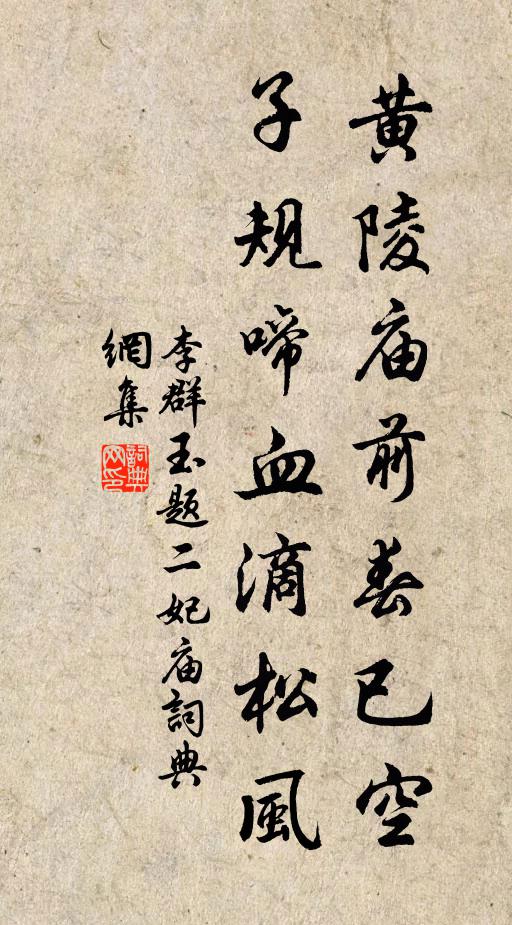 黄陵庙前春已空
子规啼血滴松風
李群玉题二妃庙詞典
網集
詞典網印